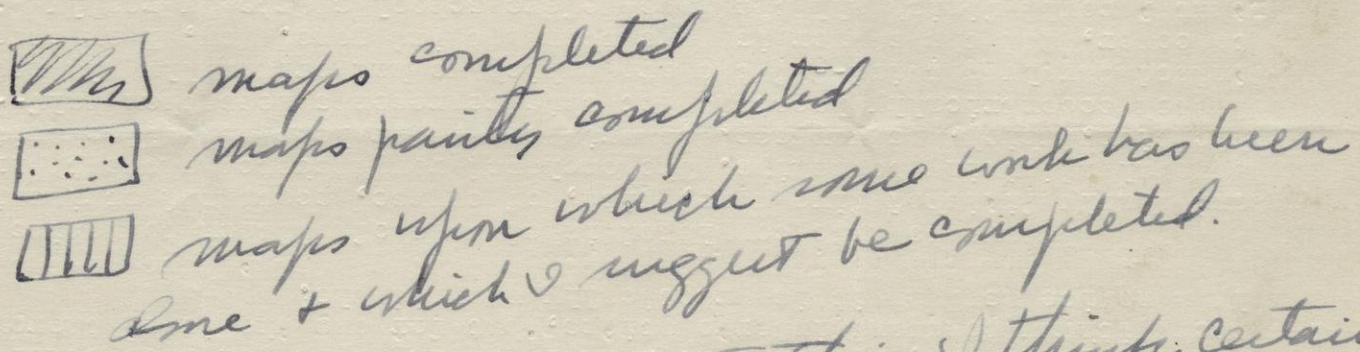 maps completed
maps partly completed
maps upon which some work has been
done + which I suggest be completed.
I think certain